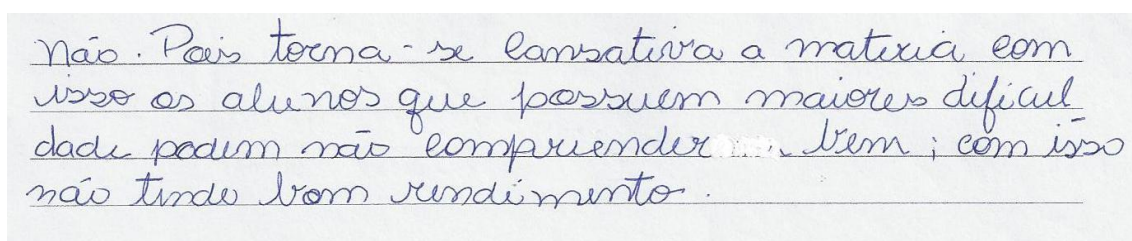 Não. Pois torna-se cansativa a materia com
isso os alunos que possuem maiores dificul
dade podem não compreender bem; com isso
não tendo bom rendimento.